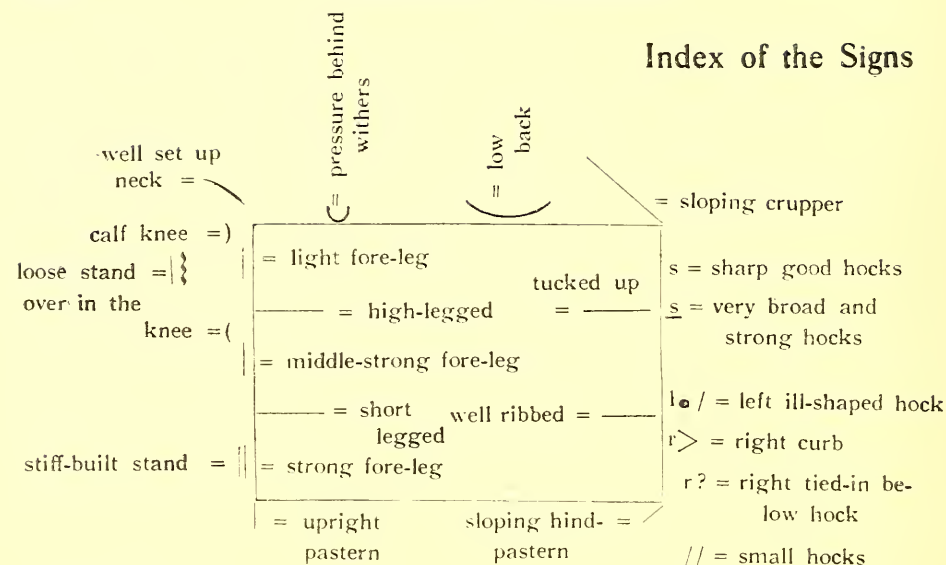 Index of the Signs
= pressure behind
withers
= low
back
well set up
neck =
= sloping crupper
calf knee =)
loose stand =
over in the
knee =(
stiff-built stand =
= light fore-leg
= high-legged
tucked up
=
= middle-strong fore-leg
= short
legged
well ribbed =
= strong fore-leg
s = sharp good hocks
s = very broad and
strong hocks
l. / = left ill-shaped hock
r> = right curb
r? = right tied-in be-
low hock
// = small hocks
= upright
pastern
sloping hind- =
pastern